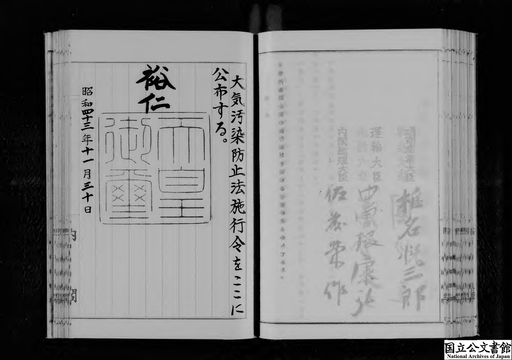 大気汚染防止法施行令をここに
公布する。
裕仁
天皇
御璽
昭和四十三年十一月三十日
内閣
通商産業大臣
椎名悦三郎
運輸大臣
中曽根康弘
内閣総理大臣
佐藤栄作
国立公文書館
National Archives of Japan